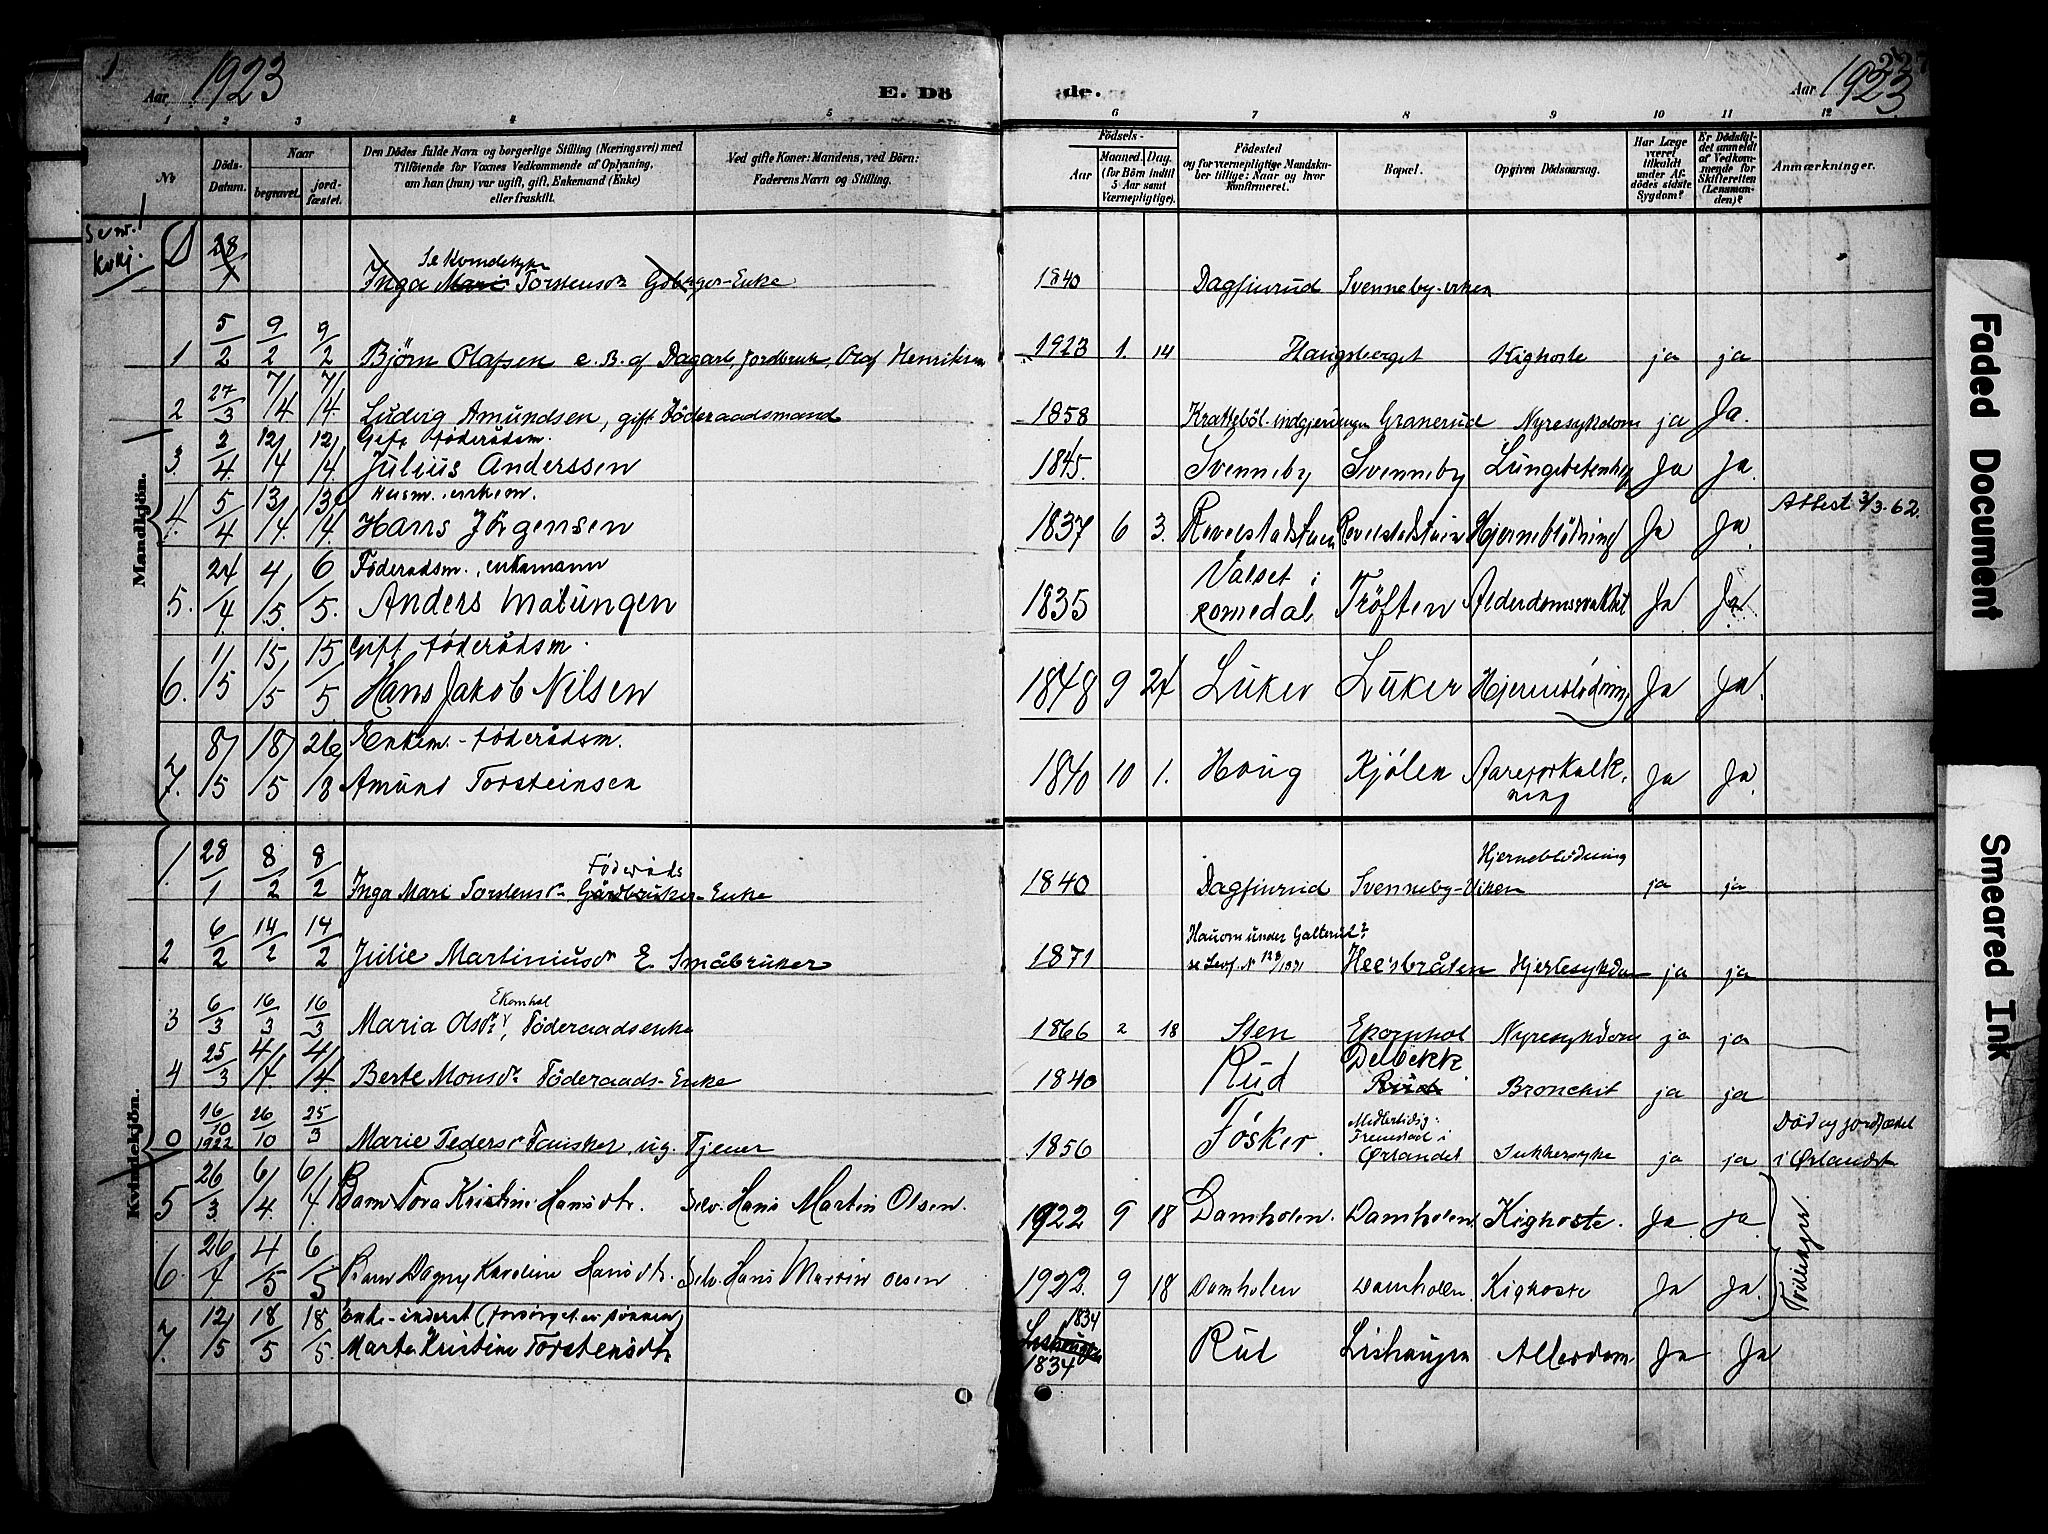 1923
Aar
E. Dö
de.
Aar 1923
227
1 2 3 4 5 6 7 8 9 10 11 12
№
Döds-
Datum.
Naar
begravet.
jord-
fæstet.
Den Dödes fulde Navn og borgerlige Stilling (Næringsvei) med
Tilföiende for Voxnes Vedkommende af Oplysning,
om han (hun) var ugift, gift, Enkemand (Enke)
eller fraskilt.
Ved gifte Koner: Mandens, ved Börn:
Faderens Navn og Stilling.
Födsels-
Aar
Maaned. Dag.
(for Börn indtil
5 Aar samt
Værnepligtige).
Födested
og for værnepligtige Mandskaber tillige: Naar og hvor
konfirmeret.
Bopæl.
Opgiven Dödsaarsag.
Har Læge
været
tilkaldt
under Afdödes sidste
Sygdom?
Er Dödsfaldet anmeldt
af Vedkommende for
Skifteretten
(Lensmanden)?
Anmærkninger.
Mandkjön.
28/1 Se Kvindekjøn
Inga Mari Torstensdr. Enke 1840 Dagfinrud Svenneby-viken
1 5/2 9/2 9/2 Bjørn Olafsen e. B. af Dagarb., Jordbruk., Olaf Henriksen 1923 1. 14 Haugsberget Kighoste ja ja
2 27/3 7/4 7/4 Ludvig Amundsen, gift Föderaadsmand 1858 Kratteböl Granerud Nyresykdom ja Ja.
Gift föderådsm.
3. 2/4. 12/4 12/4. Julius Anderssen 1845. Svenneby Svenneby Ja Ja.
Husm. enkem.
4. 5/4. 13/4. 13/4. Hans Jörgensen 1837 6 3. Revelstadstuen Revelstadstuen Hjerneblödning Ja Ja. Attest 3/3. 62.
Föderadsm., enkemann
5. 24/4 4/5. 6/5. Anders Matüngen 1835 Valset i Romedal Tröften Ja Ja
Gift föderådsm.
6. 1/5 15/5 15/5 Hans Jakob Nilsen 1848 9 24 Lüker Lüker Hjerneblödning Ja Ja.
Enkem. - föderådsm.
7. 8/5 18/5 26/8 Amünd Torsteinsen 1840 10 1. Houg Kjölen Aareforkalkning Ja Ja.
Kvindekjön.
1. 28/1 8/2 8/2 Föderåds
Inga Mari Torstensdr. Gårdbruker-Enke 1840 Dagfinrud Svenneby-Viken Hjerneblödning ja ja
2 6/2 14/2 14/2 Julie Martiniusdr E. Småbruker 1871 Hauom under Galterud? Heersbråten Hjertesykdom ja ja
3 6/3 16/3 16/3 Maria Olsdr., Ekornhol Föderaadsenke 1866 2 18 Sten Ekornhol Nyresykdom ja ja
4 25/3 4/4 4/4 Berte Monsdr. Föderaads-Enke 1840 Rud Delbekk Rud Bronchit ja ja
0 16/10 1922 26/10 25/3 Marie Pedersdr Fausker, ug. Tjener 1856 Fösker. Midlertidig: Fremstad i Ørlandet Sukkersyke ja ja Död og jordfæstet i Ørlandet
5 26/3. 6/4. 6/4. Barn Tora Kristine Hansdtr. Selv. Hans Martin Olsen. 1922 9 18 Damholen. Damholen. Kighoste. Ja. ja.
6. 26/4 4/5 6/5 Barn Dagny Karoline Hansdtr. Selv. Hans Martin Olsen 1922. 9 18 Damholen Damholen. Kighoste Ja Ja.
Tvillinger
Enke - inderst (forsörget av sönnen)
7. 12/5 18/5 18/5. Marte Kristine Torstensdtr. 1834 1834 Rud Lishaugen Alderdom Ja Ja
Faded Document
Smeared Ink